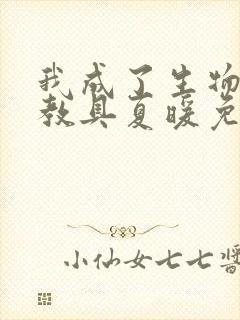 我成了生物
教具夏暖免
小仙女七七酱